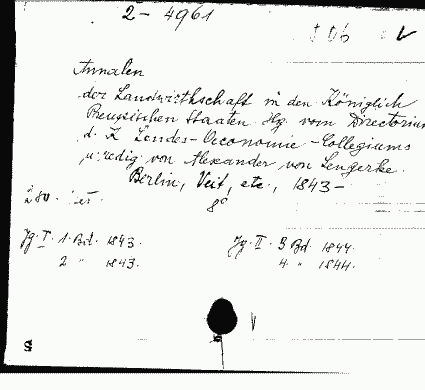 2 - 4961
Annalen
der Landwirthschaft in den Königlich
Preussischen Staaten Hg. vom Directorium
d. K. Landes-Oeconomie-Collegiums
u. redig. von Alexander von Lengerke.
Berlin, Veit, etc., 1843-
8°
Jg. I. 1. Bd. 1843. Jg. II. 3 Bd. 1844.
2 " 1843. 4. " 1844.